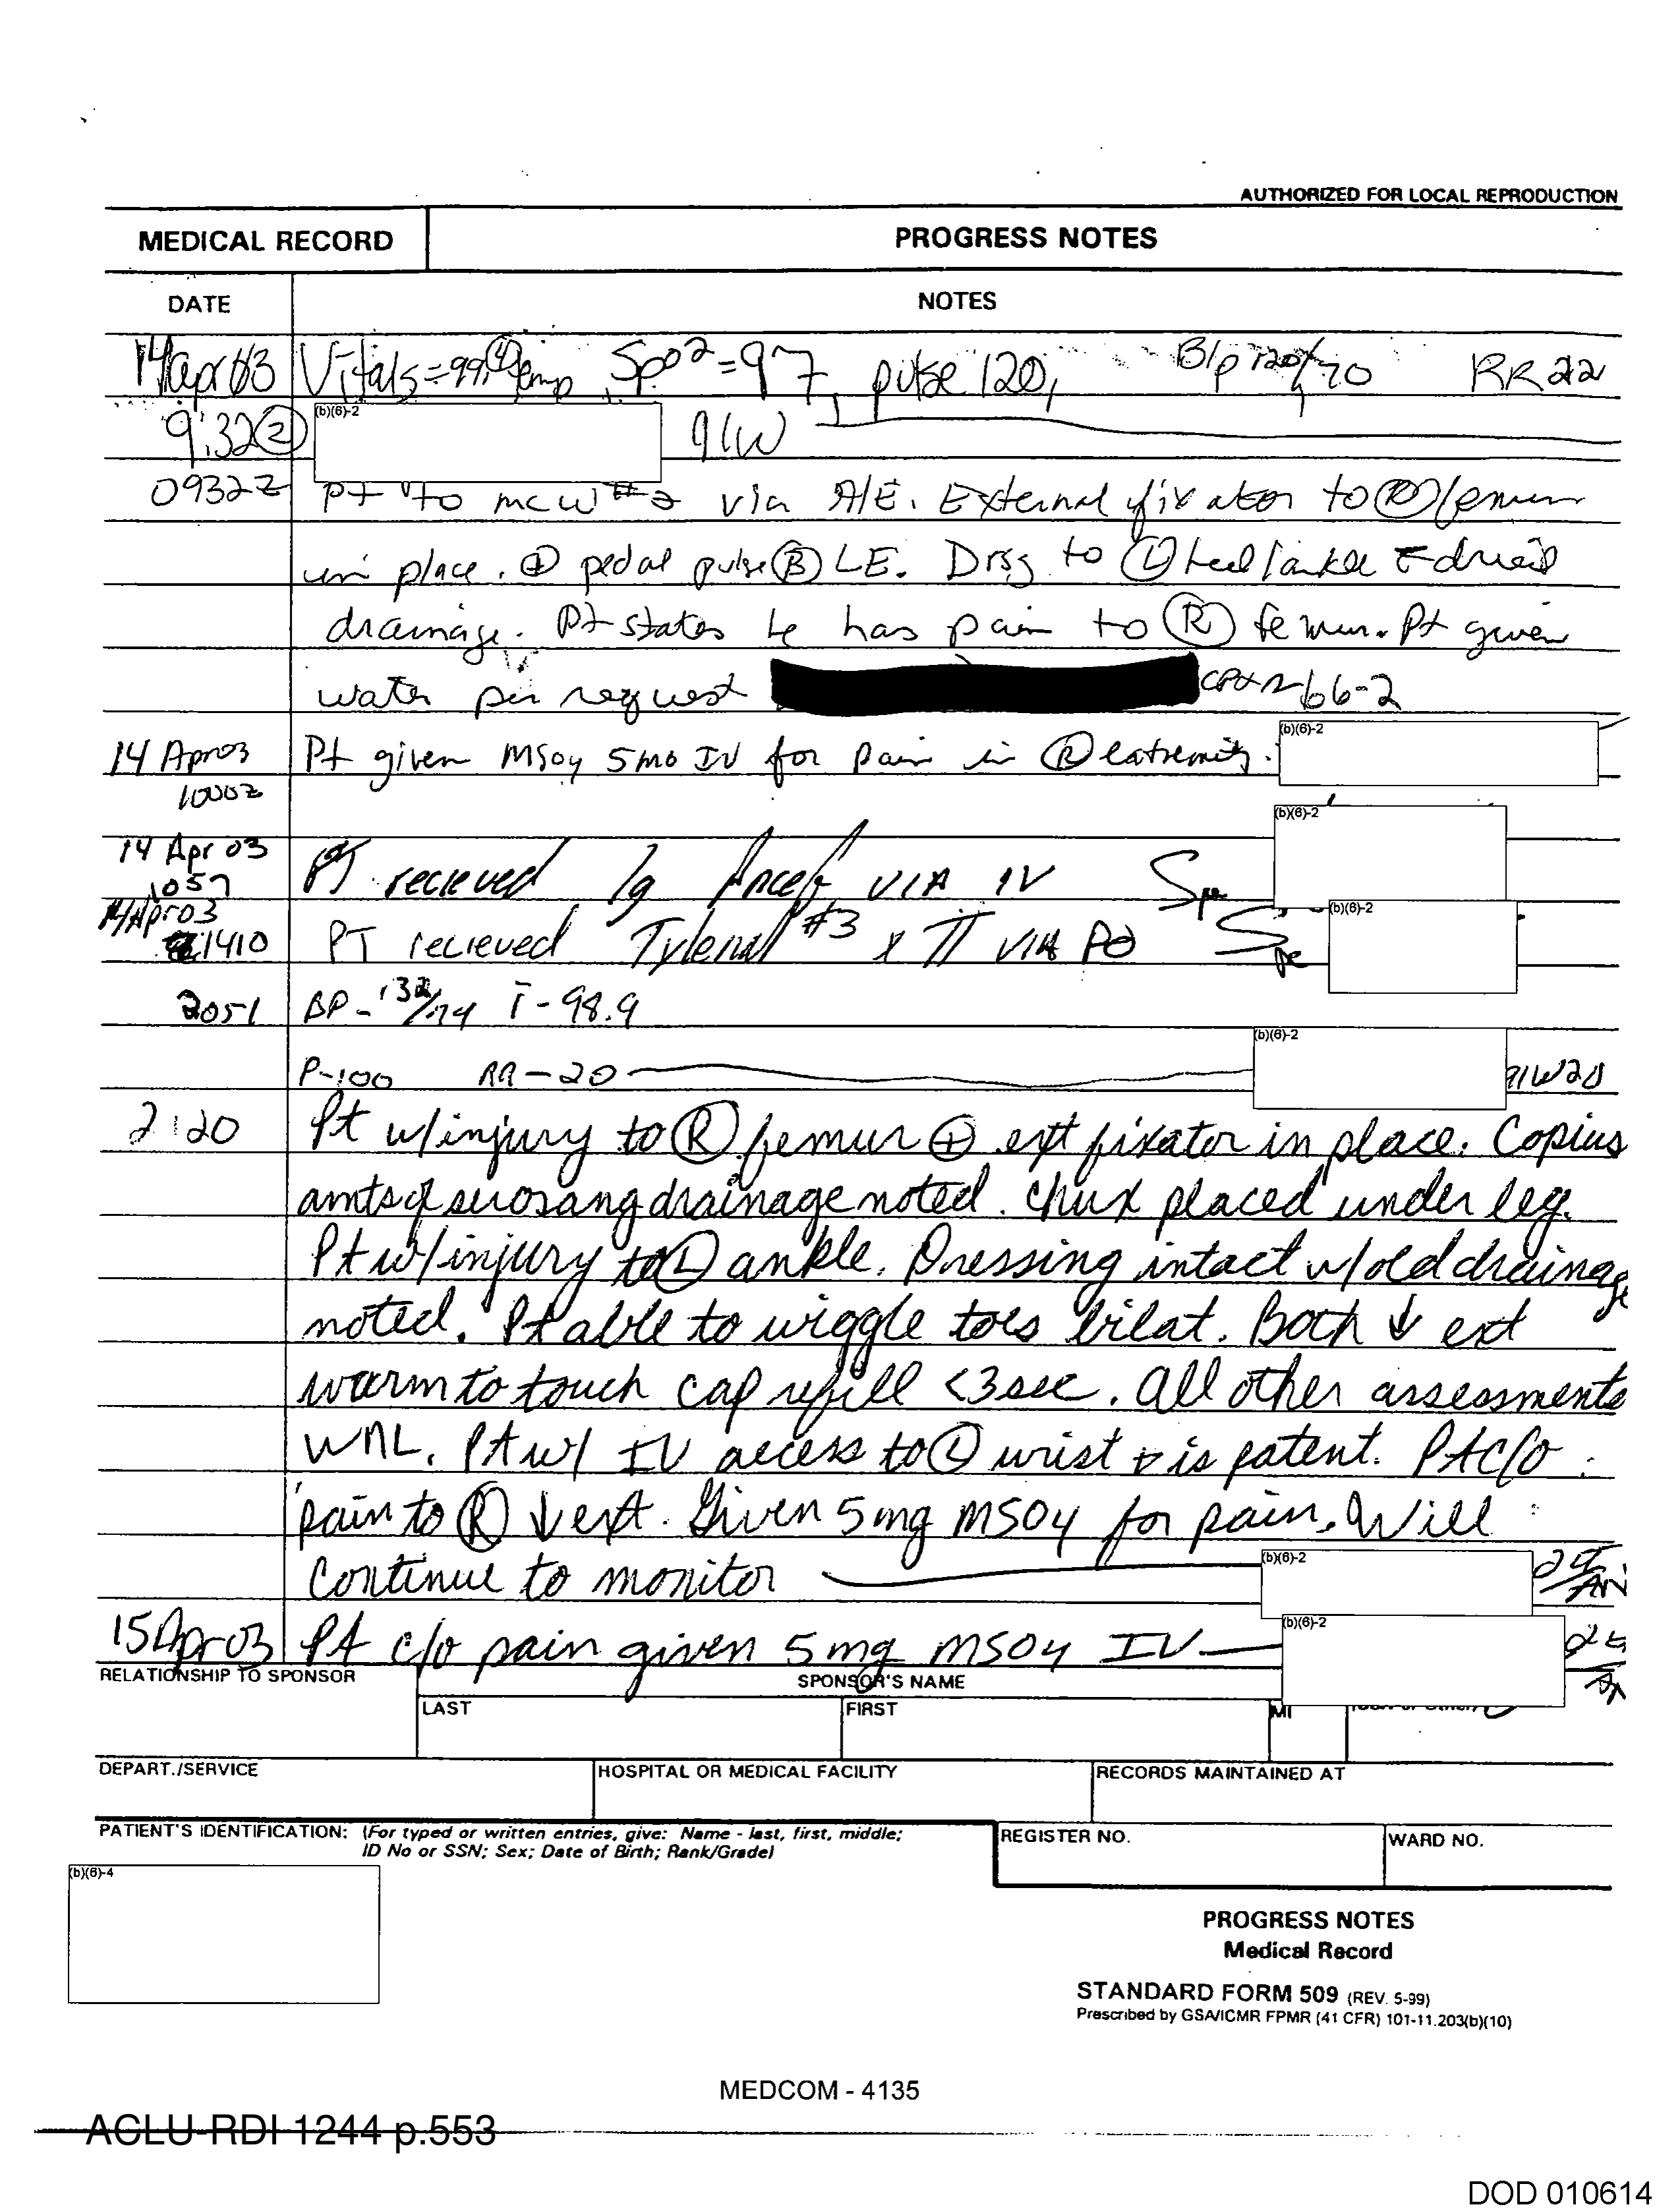 AUTHORIZED FOR LOCAL REPRODUCTION
MEDICAL RECORD PROGRESS NOTES
DATE NOTES
14 apr 03 Vitals=99. temp Spo2=97 pulse 120, B/p 120/70 RR 22
9:32 (b)(6)-2 91W
0932Z Pt to mcw #2 via A/E. External fixator to Ⓡ femur
in place. ⊕ pedal pulse Ⓑ LE. Drsg to Ⓛ heel/ankle c̄ dried
drainage. Pt states he has pain to Ⓡ femur. Pt given
water per request b6-2
14 Apr 03 Pt given MSO4 5mg IV for pain in Ⓡ extremity. (b)(6)-2
1000Z
(b)(6)-2
14 Apr 03
1057 PT recieved 1g Ancef VIA IV Spc
14 Apr 03 (b)(6)-2
1410 PT recieved Tylenol #3 x II VIA PO Spc
2051 BP-132/74 T-98.9
(b)(6)-2
P-100 RR-20 91W20
2120 Pt w/injury to Ⓡ femur ⊕ ext fixator in place. Copius
amts of serosang drainage noted. Chux placed under leg.
Pt w/injury to Ⓛ ankle. Dressing intact w/old drainage
noted. Pt able to wiggle toes bilat. Both ↓ ext
warm to touch cap refill <3sec. All other assessments
WNL. Pt w/ IV access to Ⓛ wrist + is patent. Pt c/o
pain to Ⓡ ↓ ext. Given 5mg MSO4 for pain. Will
Continue to monitor (b)(6)-2 2LT/AN
15 Apr 03 Pt c/o pain given 5mg MSO4 IV (b)(6)-2 2LT/AN
RELATIONSHIP TO SPONSOR SPONSOR'S NAME
LAST FIRST MI
DEPART./SERVICE HOSPITAL OR MEDICAL FACILITY RECORDS MAINTAINED AT
PATIENT'S IDENTIFICATION: (For typed or written entries, give: Name - last, first, middle; REGISTER NO. WARD NO.
ID No or SSN; Sex; Date of Birth; Rank/Grade)
(b)(6)-4
PROGRESS NOTES
Medical Record
STANDARD FORM 509 (REV. 5-99)
Prescribed by GSA/ICMR FPMR (41 CFR) 101-11.203(b)(10)
MEDCOM - 4135
ACLU-RDI 1244 p.553
DOD 010614